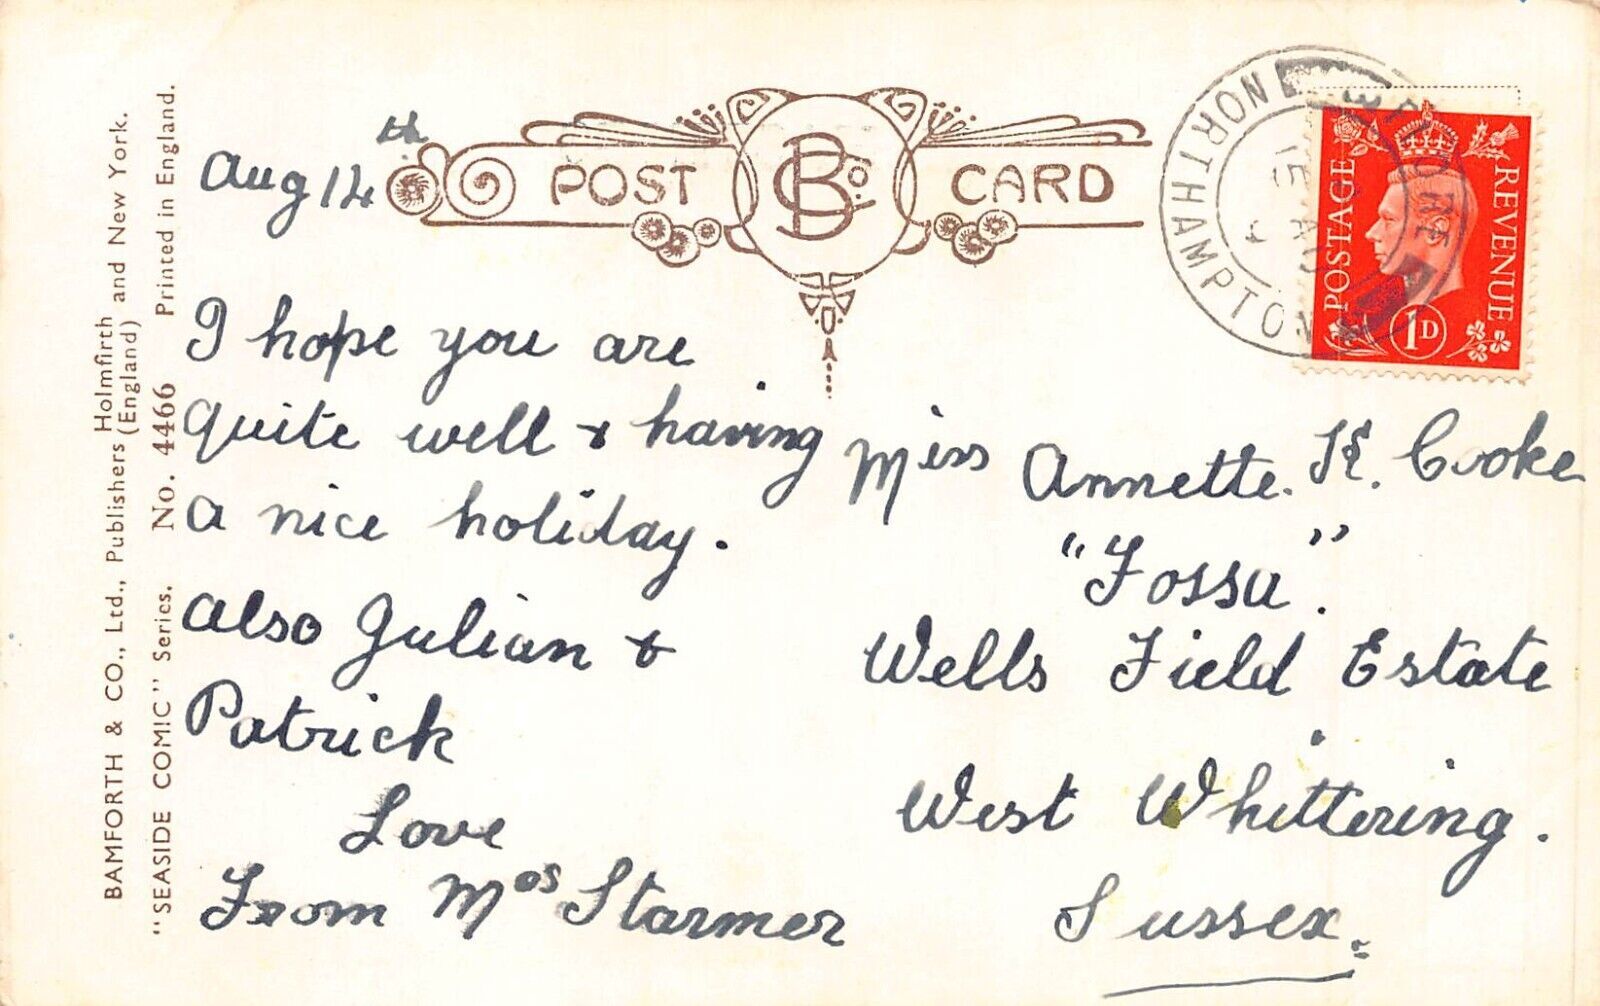 Aug 14th
POST CARD
B Co. Ltd
I hope you are
quite well & having
a nice holiday.
also Julian &
Patrick
Love
From Mrs Starmer
Miss Annette. K. Cooke
"Fossa".
Wells Field Estate
West Whittering.
Sussex.
POSTAGE REVENUE
1D
NORTHAMPTON
BAMFORTH & CO., Ltd., Publishers Holmfirth (England) and New York.
"SEASIDE COMIC" Series. No. 4466 Printed in England.